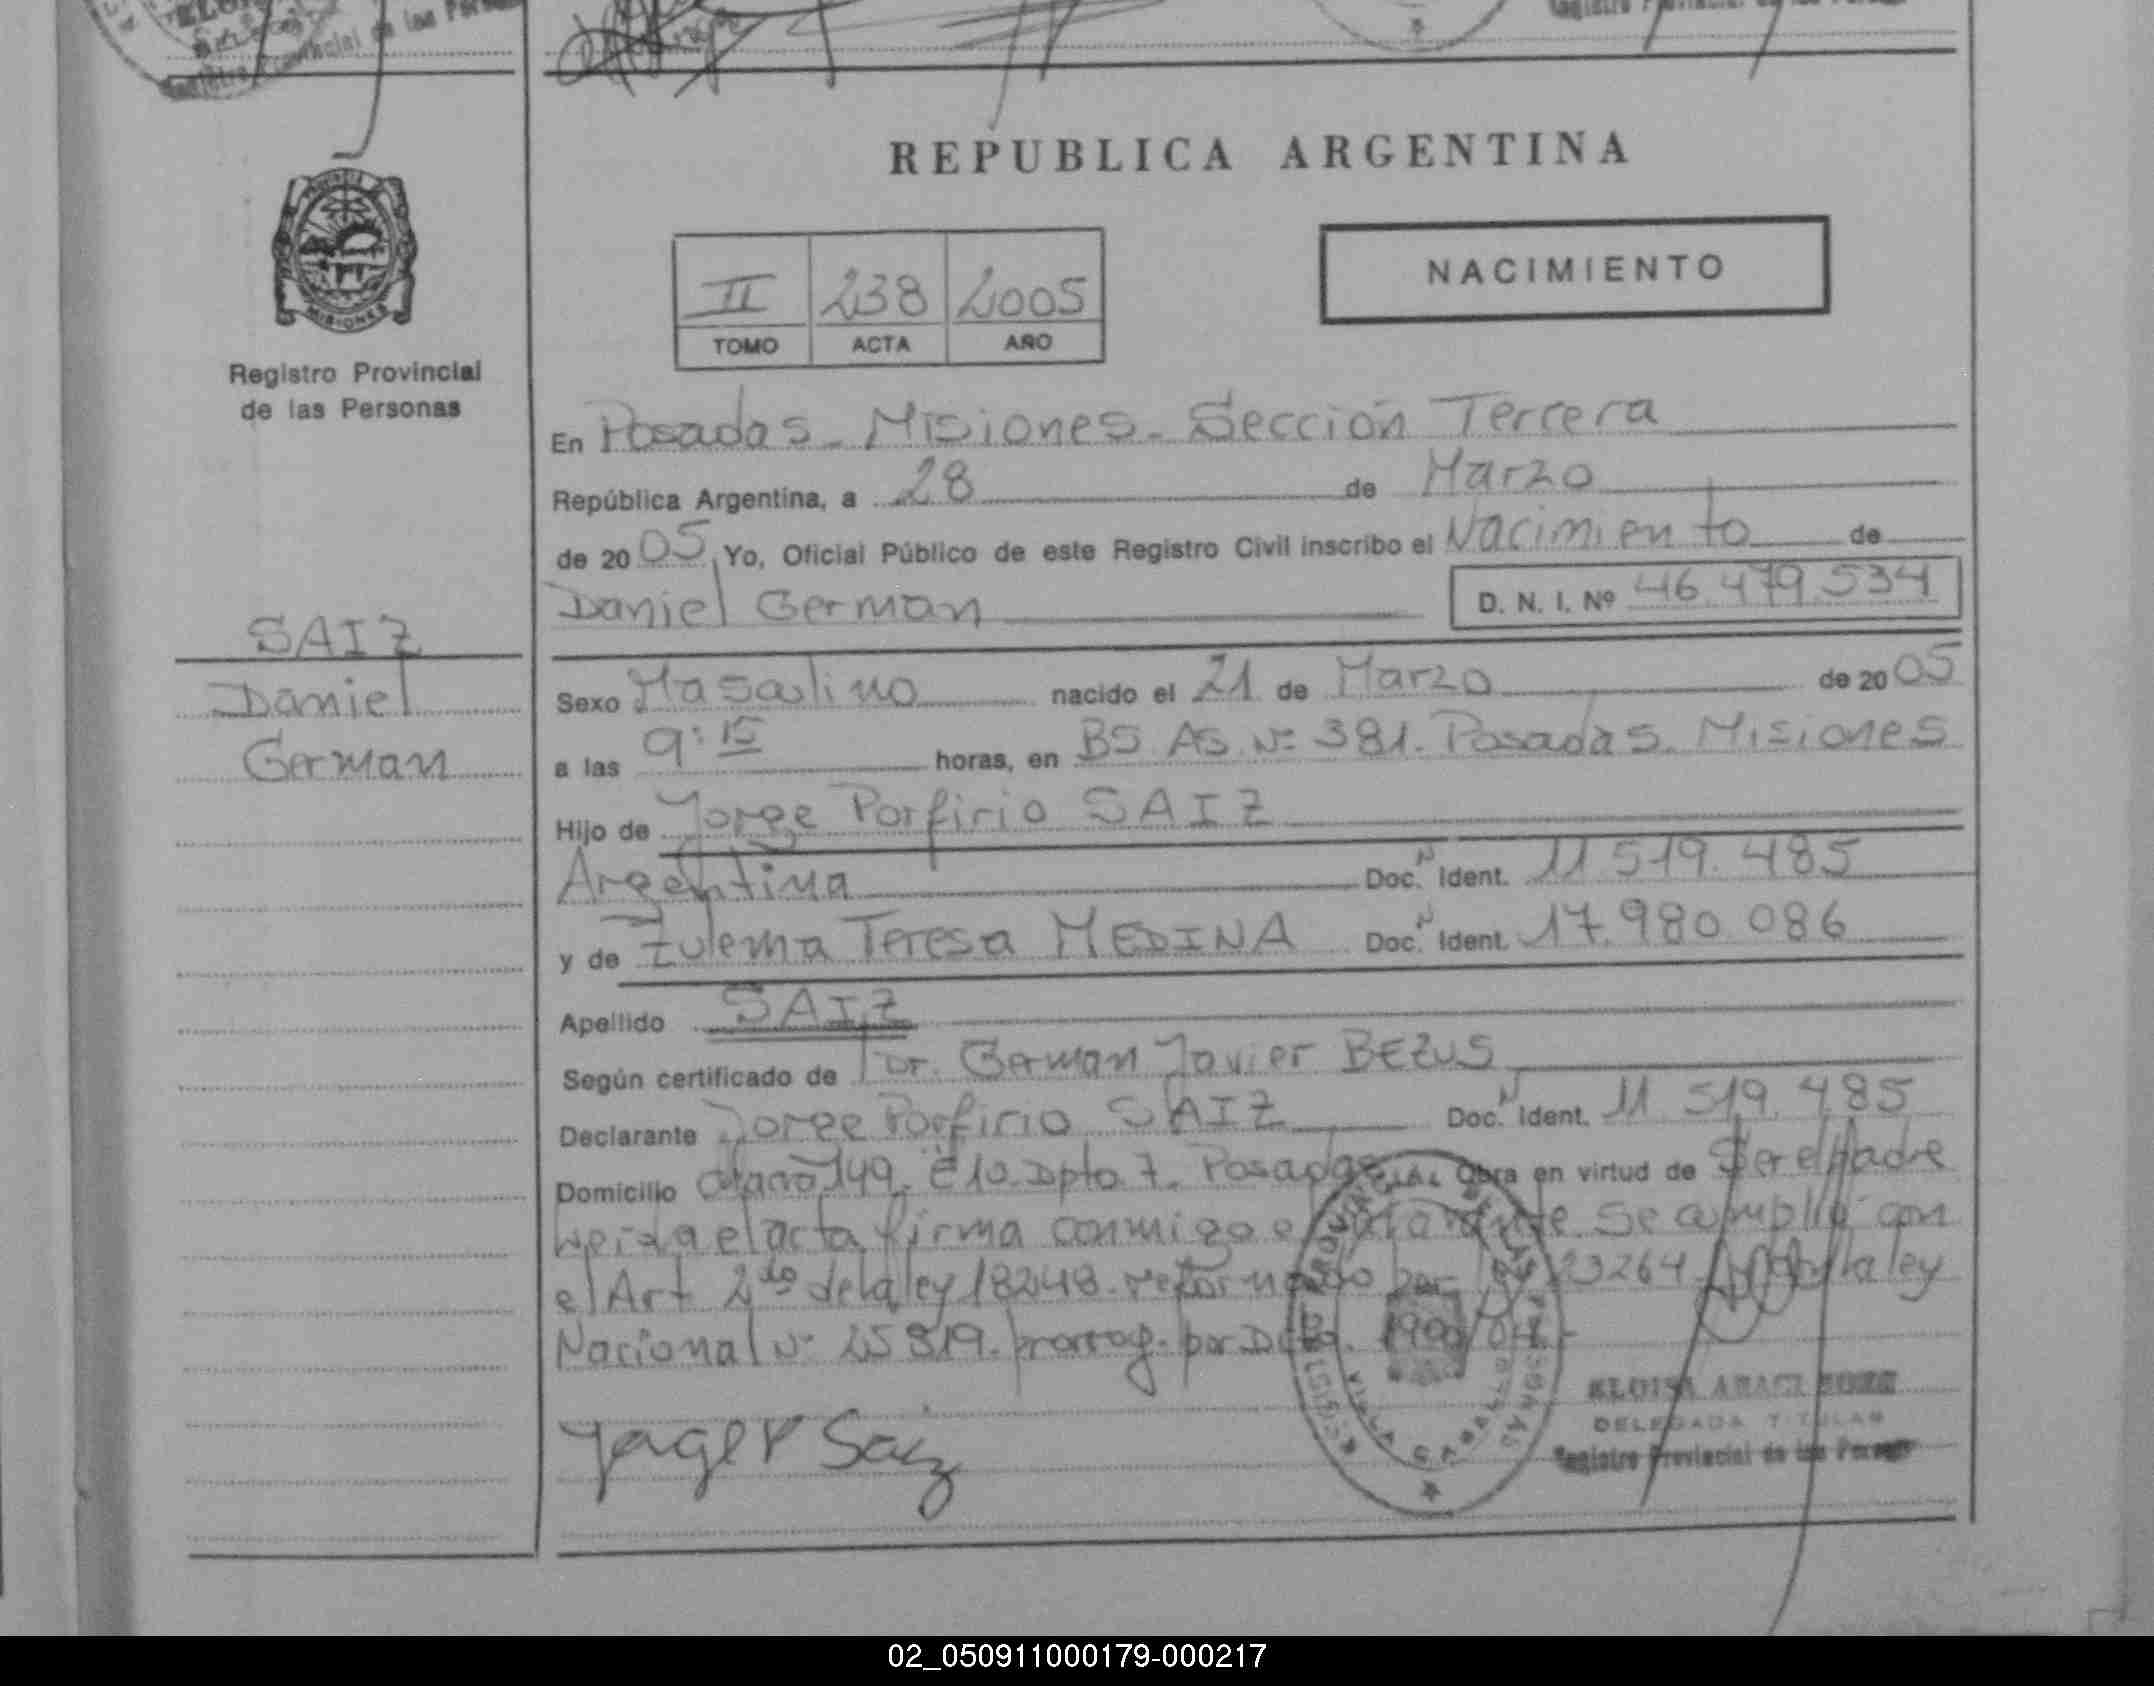 REPUBLICA ARGENTINA
PROVINCIA DE
MISIONES
Registro Provincial
de las Personas
II 238 2005
TOMO ACTA AÑO
NACIMIENTO
En Posadas - Misiones - Sección Tercera
República Argentina, a 28 de Marzo
de 2005 Yo, Oficial Público de este Registro Civil inscribo el Nacimiento de
Daniel German D. N. I. Nº 46.479.534
SAIZ
Daniel
German
Sexo Masculino nacido el 21 de Marzo de 2005
a las 9:15 horas, en BS. AS. Nº 381. Posadas. Misiones
Hijo de Jorge Porfirio SAIZ
Argentina Doc. N Ident. 11.519.485
y de Zulema Teresa MEDINA Doc. N Ident. 17.980.086
Apellido SAIZ
Según certificado de Dr. German Javier BEZUS
Declarante Jorge Porfirio SAIZ Doc. N Ident. 11.519.485
Domicilio 149. E 10. Dpto 7. Posadas Obra en virtud de Ser el Padre
Leida el acta firma conmigo el Se cumplió con
el Art 2do de la ley 18248. reformado por 23264 la ley
Nacional Nº 25819. prorrog. por
DELEGADA TITULAR
Registro Provincial de las Personas
02_050911000179-000217